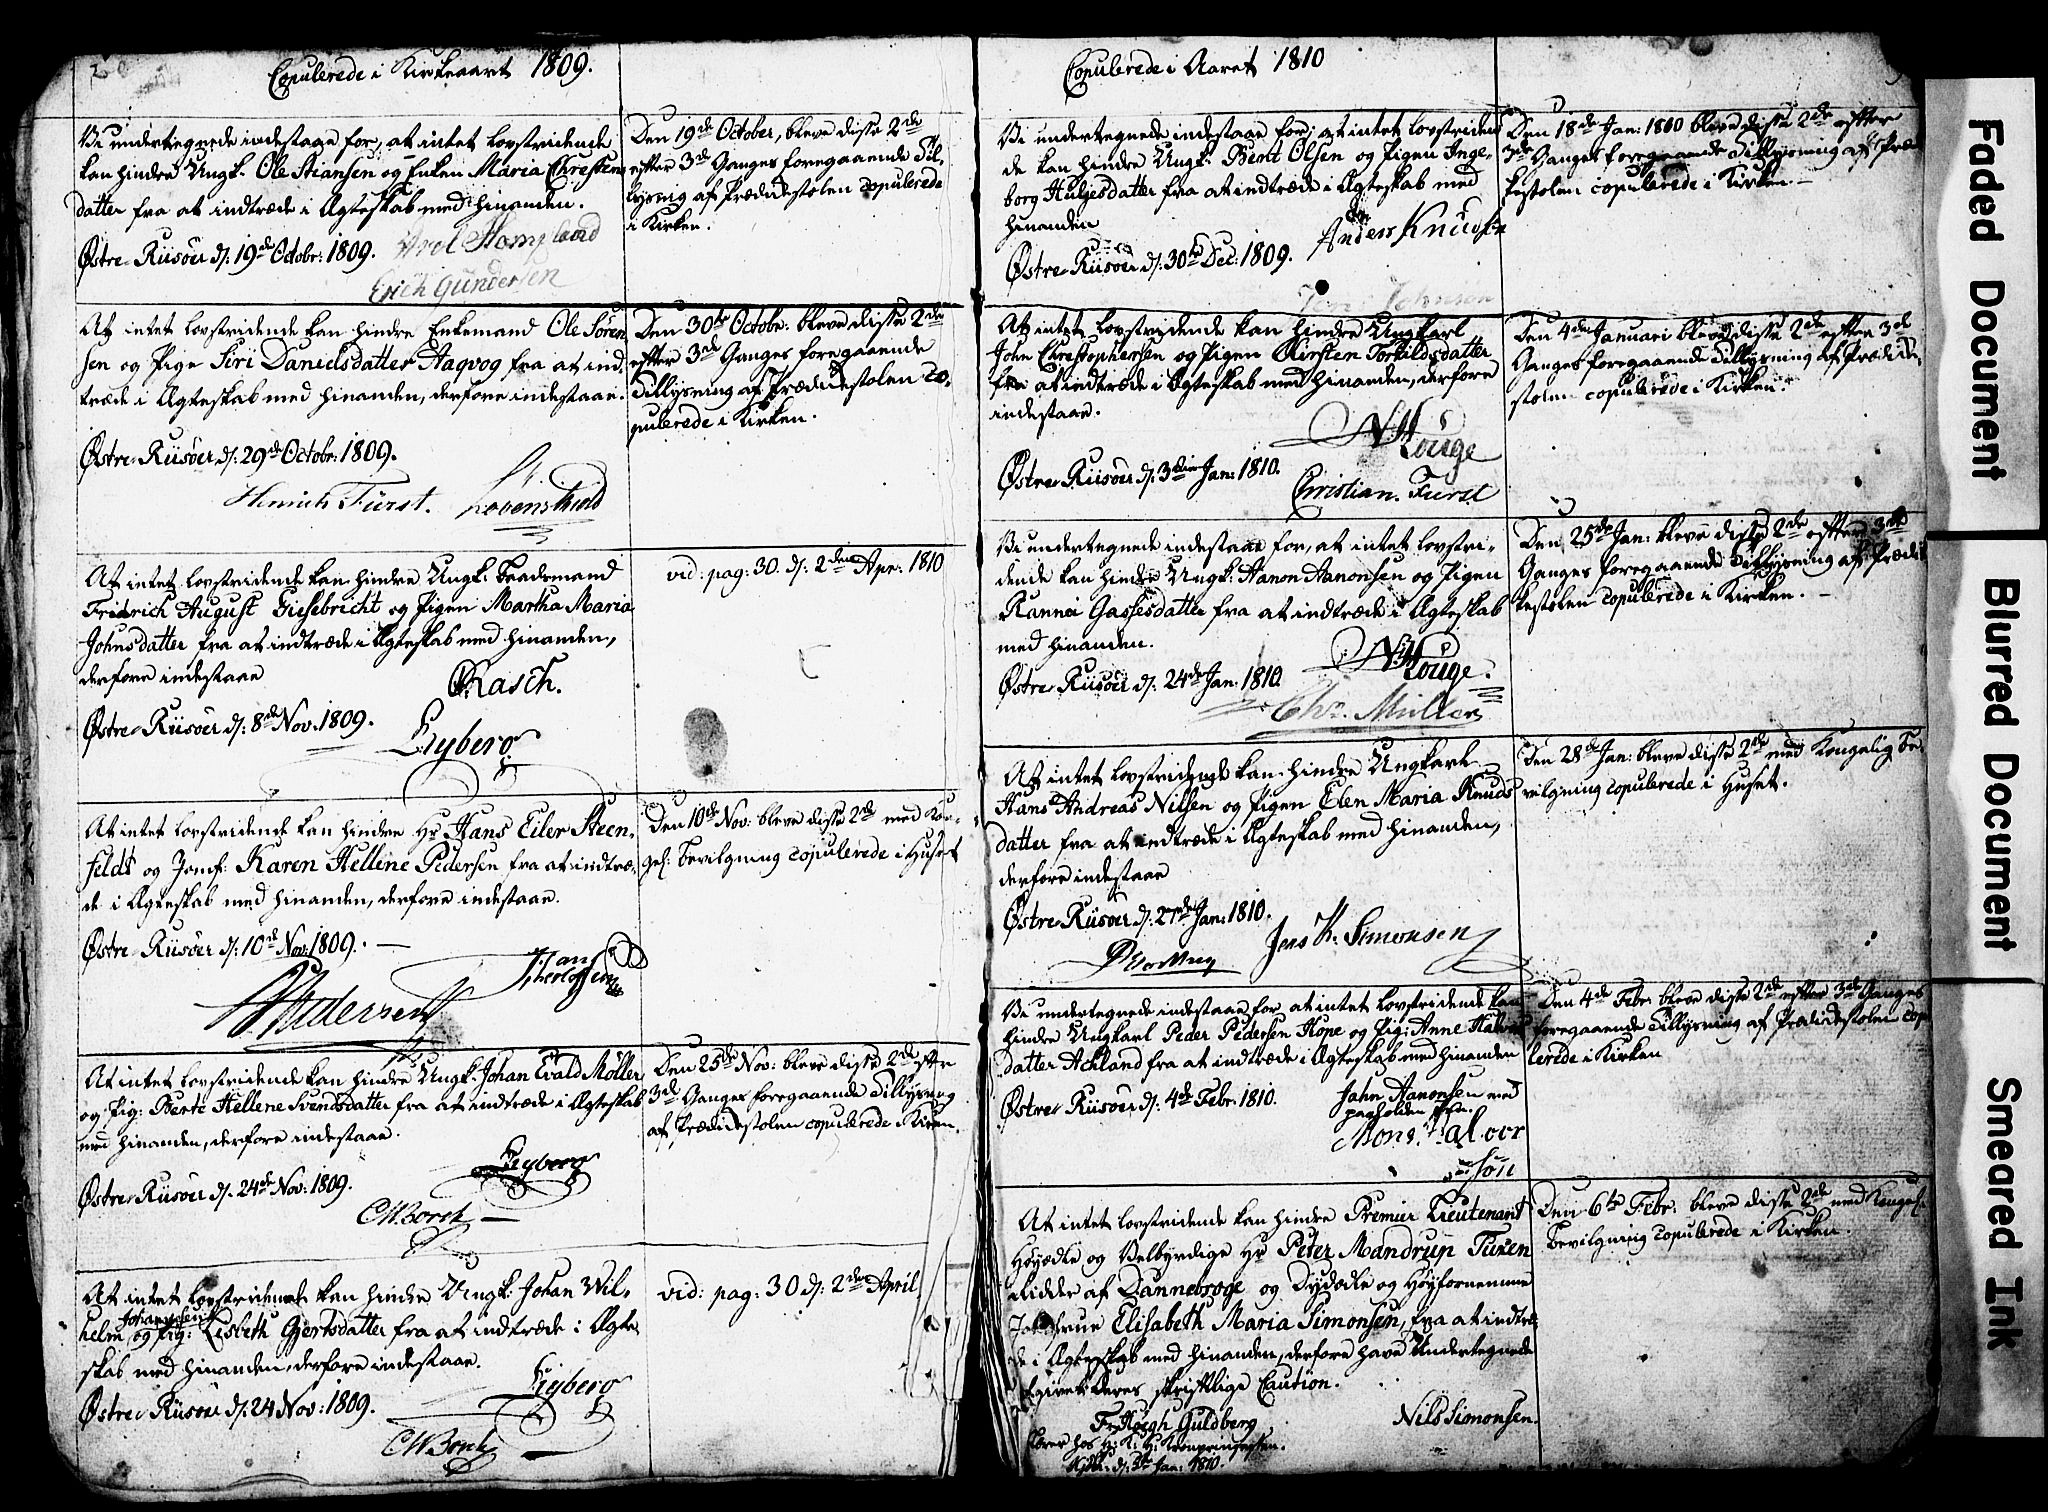 Copulerede i Kirkeaaret 1809.
Vi undertegnede indestaae for, at intet lovstridende
kan hindre Ungk. Ole Stiansen og Enken Maria Christens
datter fra at indtræde i Ægteskab med hinanden.
Østre-Riisöer d: 19de Octobr: 1809.
Erich Gundersen
Den 19de October, bleve disse 2de
efter 3de Ganges foregaaende Til-
lysning af Prædikestolen copulerede
i Kirken.
At intet lovstridende kan hindre Enkemand Ole Sören
sen og Pige Siri Danielsdatter Aaqvog fra at ind
træde i Ægteskab med hinanden, derfore indestaae.
Østre-Riisöer d: 29de Octobr: 1809.
Henrich Fürst. Lövenskiold
Den 30te Octobr: bleve disse 2de
efter 3de Ganges foregaaende
Tillysning af Prædikestolen co-
pulerede i Kirken.
At intet lovstridende kan hindre Ungk: Baadsmand
Fridrich August Giesebricht og Pigen Martha Maria
Johnsdatter fra at indtræde i Ægteskab med hinanden,
derfore indestaae
Rasch.
Østre-Riisöer d: 8de Nov: 1809.
Eyberg
vid: pag: 30. d: 2den Apr: 1810
At intet lovstridende kan hindre Hr Hans Eiler Steen-
feldt og Jomf: Karen Hellene Pedersen fra at indtræ-
de i Ægteskab med hinanden, derfore indestaae.
Østre-Riisöer d: 10de Nov: 1809.
Pedersen
Den 10de Nov: bleve disse 2de med Kon-
gel: Bevilgning copulerede i Huset
At intet lovstridende kan hindre Ungk: Johan Evald Møller
og Pig: Berte Hellene Svendsdatter fra at indtræde i Ægteskab
med hinanden, derfore indestaae.
Eyberg
Østre-Riisöer d: 24de Nov: 1809.
CW Borch
Den 25de Nov: bleve disse 2de eftr
3de Ganges foregaaende Tillysning
af Prædikestolen copulerede i Kirken.
At intet lovstridende kan hindre Ungk: Johan Wil-
Johannesen
helm og Pig: Lisbeth Gjertsdatter fra at indtræde i Ægte-
skab med hinanden, derfore indestaae.
Eyberg
Østre-Riisöer d: 24 Nov: 1809.
CW Borch
vid: pag: 30 d: 2den April
Copulerede i Aaret 1810
Vi undertegnede indestaae for, at intet lovstriden
de kan hindre Ungk: Bent Olsen og Pigen Inge-
borg Huljesdatter fra at indtræde i Ægteskab med
hinanden
Anders Knudsen
Østre-Riisöer d: 30te Dec: 1809.
Jens Johnsen
Den 18de Jan: 1810 bleve disse 2de efter
3de Ganges foregaaende Tillysning af Præd
kestolen copulerede i Kirken
At intet lovstridende kan hindre Ungkarl
John Christophersen og Pigen Kirsten Torkildsdatter
fra at indtræde i Ægteskab med hinanden, derfore
indestaae.
N: Houge
Østre-Riisöer d: 3die Jan: 1810.
Christian Fürst
Den 4de Januari bleve disse 2de efter 3de
Ganges foregaaende Tillysning af Prædike-
stolen copulerede i Kirken
Vi undertegnede indestaae for, at intet lovstri-
dende kan hindre Ungk: Aanon Aanonsen og Pigen
Rannei Gassesdatter fra at indtræde i Ægteskab
med hinanden.
N: Houge.
Østre-Riisöer d: 24de Jan: 1810.
Chr. Müller
Den 25de Jan: bleve disse 2de efter 3de
Ganges foregaaende Tillysning af Prædi
kestolen copulerede i Kirken.
At intet lovstridende kan hindre Ungkarl
Hans Andreas Nilsen og Pigen Elen Maria Knuds
datter fra at indtræde i Ægteskab med hinanden,
derfore indestaae
Østre-Riisöer d: 27de Jan: 1810.
Jens K: Simonsen
Den 28de Jan: bleve disse 2de med Kongelig Be-
vilgning copulerede i Huset.
Vi undertegnede indestaae for at intet lovstridende kan
hindre Ungkarl Peder Pedersen Hope og Pig: Anne Halvors
datter Ackland fra at indtræde i Ægteskab med hinanden
Østre-Riisöer d: 4de Febr: 1810.
Jahn Aanonsen med
paaholden Pen.
Mons Halvor
sön
Den 4de Febr: bleve disse 2de efter 3de Ganges
foregaaende Tillysning af Prædikestolen copu
lerede i Kirken
At intet lovstridende kan hindre Premier Lieutenant
Høyædle og Velbyrdige Hr Peter Mandrup Tuxen
Ridder af Dannebroge og Dydædle og Høyfornemme
Jomfrue Elisabeth Maria Simonsen, fra at indtræ-
de i Ægteskab med hinanden, derfore have Undertegnede
givet deres skriftlige Caution.
Fr. Høegh Guldberg
Nils Simonsen.
Lærer hos H: K: H: Kronprinsessen.
d: 3de Jan: 1810.
Den 6te Febr: bleve disse 2de med Kongel:
Bevilgning copulerede i Kirken
Faded Document
Blurred Document
Smeared Ink